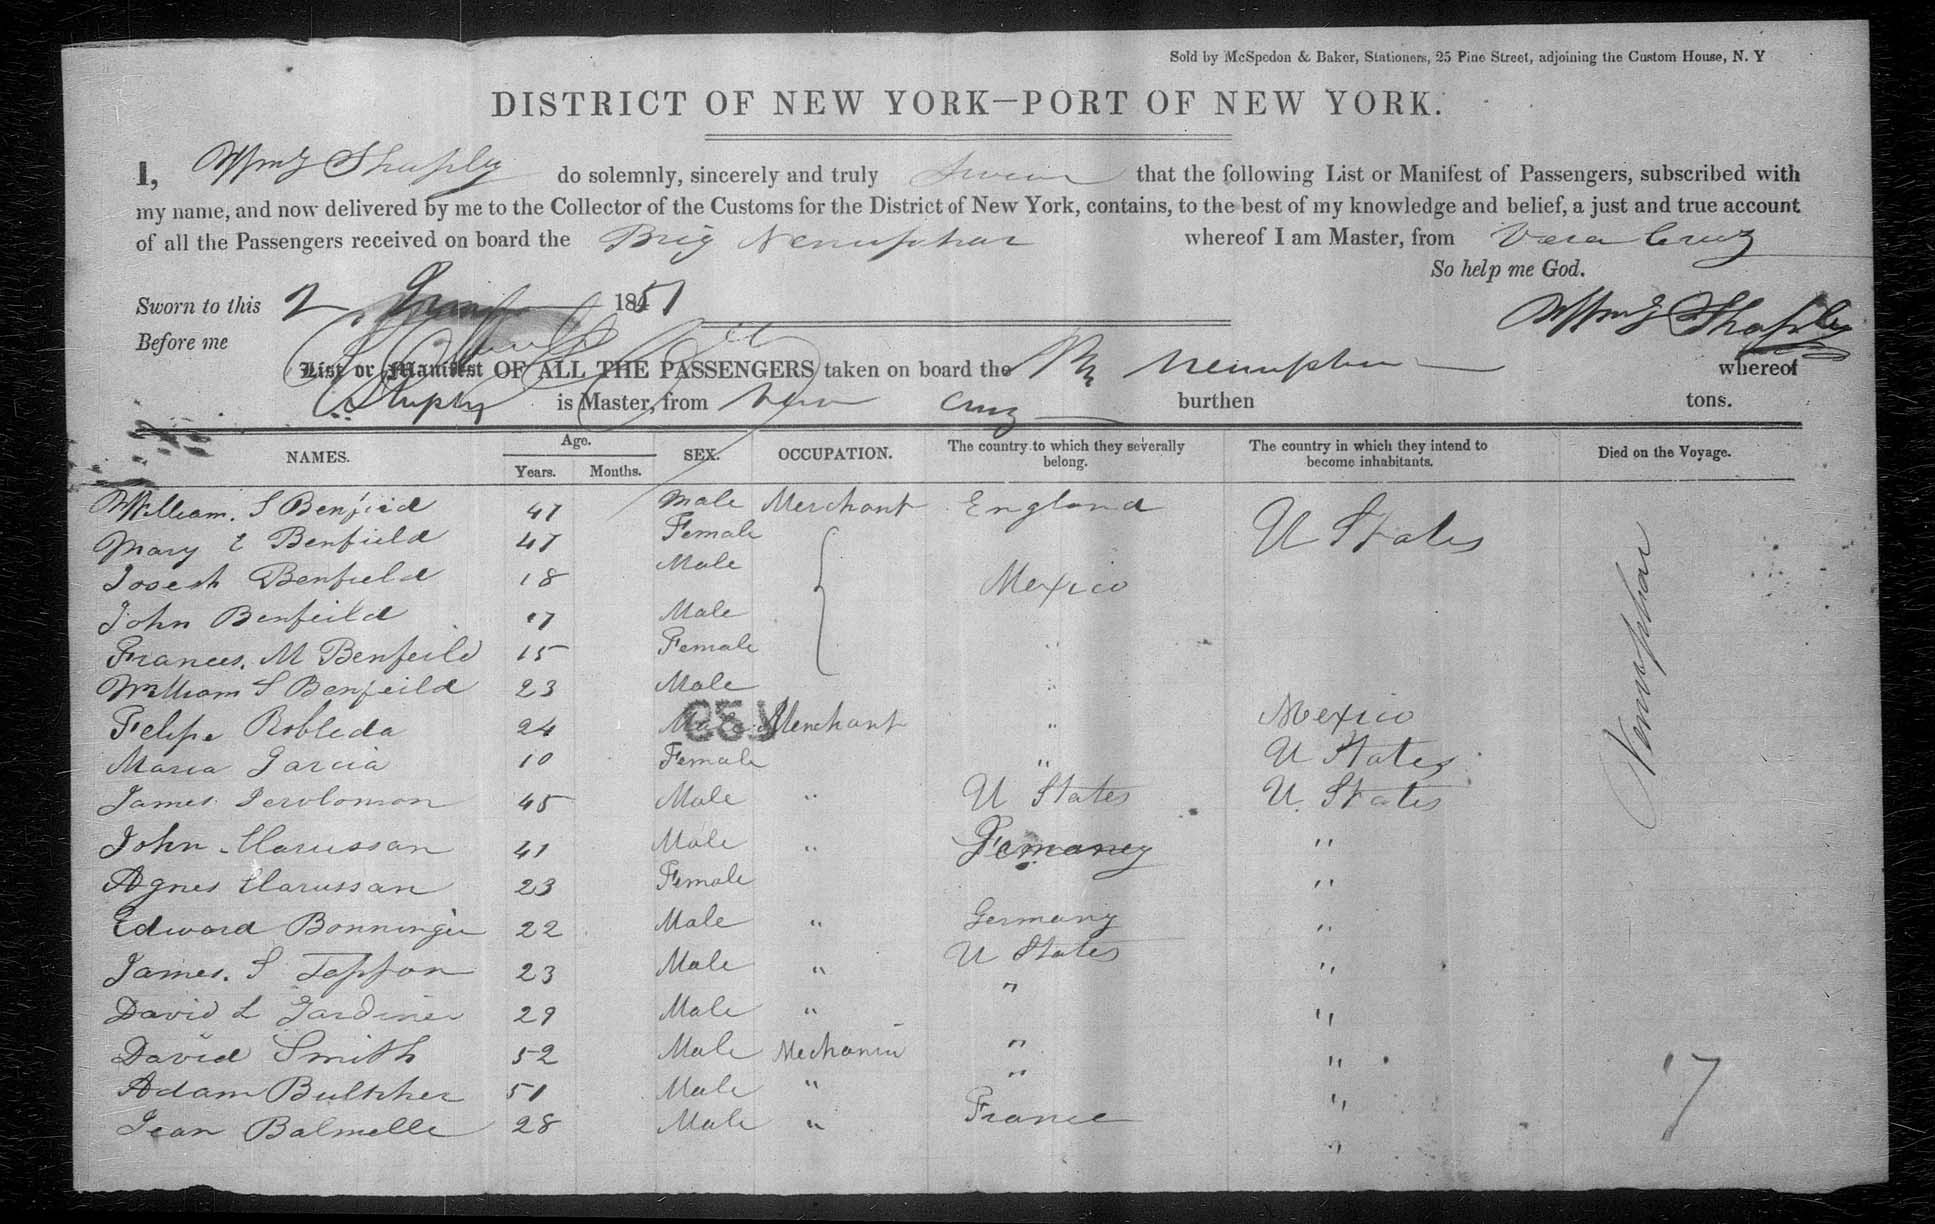 Sold by McSpedon & Baker, Stationers, 25 Pine Street, adjoining the Custom House, N. Y
DISTRICT OF NEW YORK—PORT OF NEW YORK.
I, Shapley do solemnly, sincerely and truly Swear that the following List or Manifest of Passengers, subscribed with
my name, and now delivered by me to the Collector of the Customs for the District of New York, contains, to the best of my knowledge and belief, a just and true account
of all the Passengers received on board the Brig Nenuphar whereof I am Master, from Vera Cruz
So help me God.
Sworn to this 2 1851
Shapley
Before me
List or Manifest OF ALL THE PASSENGERS taken on board the Br Nenuphar whereof
Shapley is Master, from Vera Cruz burthen tons.
NAMES. Age. Years. Months. SEX. OCCUPATION. The country to which they severally belong. The country in which they intend to become inhabitants. Died on the Voyage.
William. S Benfield 47 Male Merchant England U States
Mary E Benfield 47 Female
Joseph Benfield 18 Male Mexico
John Benfeild 17 Male
Frances. M Benfeild 15 Female "
William S Benfeild 23 Male "
Felipe Robleda 24 Male Merchant " Mexico
Maria Garcia 10 Female " U States
James 45 Male " U States U. States
John Harussan 41 Male " Germaney "
Agnes Harussan 23 Female "
Edward Bonninger 22 Male " Germany "
James. S 23 Male " U States "
David L Gardiner 29 Male " " "
David Smith 52 Male Mechanic " "
Adam Bultcher 51 Male " " "
Jean Balmelle 28 Male " France "
Nenuphar
17